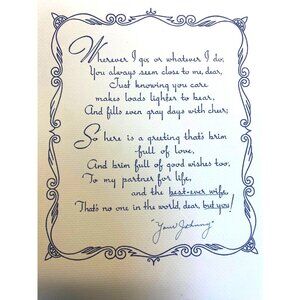 Wherever I go, or whatever I do,
You always seem close to me, dear,
Just knowing you care
makes loads lighter to bear,
And fills even gray days with cheer;
So here is a greeting that's brim
full of love,
And brim full of good wishes too,
To my partner for life,
and the best-ever wife,
That's no one in the world, dear, but you!
"Your Johnny"